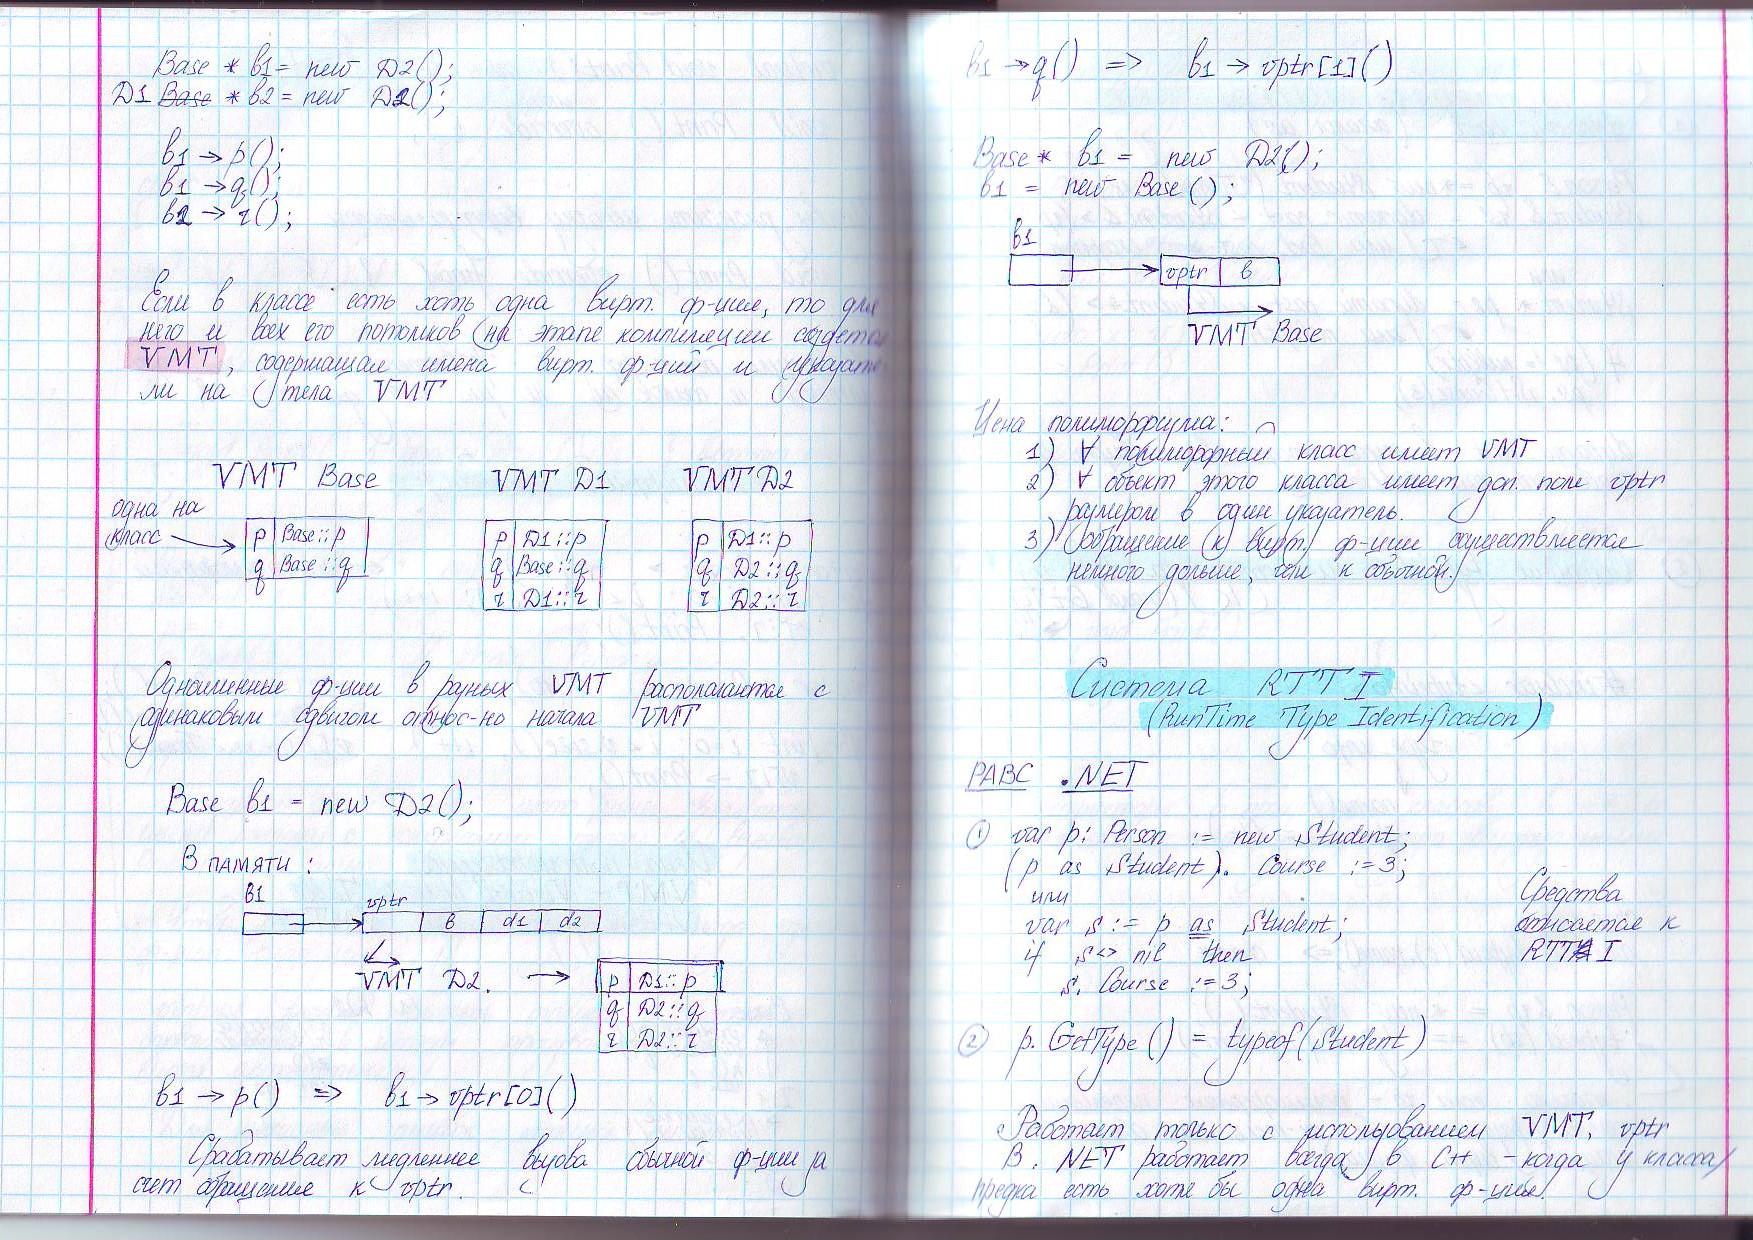 Base * b1 = new D2();
D1 Base * b2 = new D2();
b1 → p();
b1 → q();
b2 → r();
Если в классе есть хоть одна вирт. ф-ция, то для
него и всех его потомков (на этапе компиляции создется
VMT, содержащая имена вирт. ф-ций и указате
ли на тела VMT
VMT Base VMT D1 VMT D2
одна на
класс
p Base::p
q Base::q
p D1::p
q Base::q
r D1::r
p D1::p
q D2::q
r D2::r
Одноименные ф-ции в разных VMT располагаются с
одинаковым сдвигом относ-но начала VMT
Base b1 = new D2();
В памяти:
b1
vptr
b d1 d2
VMT D2. →
p D1::p
q D2::q
r D2::r
b1 → p() => b1 → vptr[0]()
Срабатывает медленнее вызова обычной ф-ции за
счет обращение к vptr.
b1 → q() => b1 → vptr[1]()
Base * b1 = new D2();
b1 = new Base();
b1
vptr b
VMT Base
Цена полиморфизма:
1) ∀ полиморфный класс имеет VMT
2) ∀ объект этого класса имеет доп. поле vptr
размером в один указатель.
3) Обращение (к вирт.) ф-ции осуществляется
немного дольше, чем к обычной.
Система RTTI
(RunTime Type Identification)
PABC .NET
① var p: Person := new Student;
(p as Student). Course := 3;
или
var s := p as Student;
if s <> nil then
s. Course := 3;
Средства
относается к
RTTI
② p. GetType() = typeof(Student)
Работает только с использованием VMT, vptr
В .NET работает всегда, в C++ - когда у класса
предка есть хотя бы одна вирт. ф-ция.